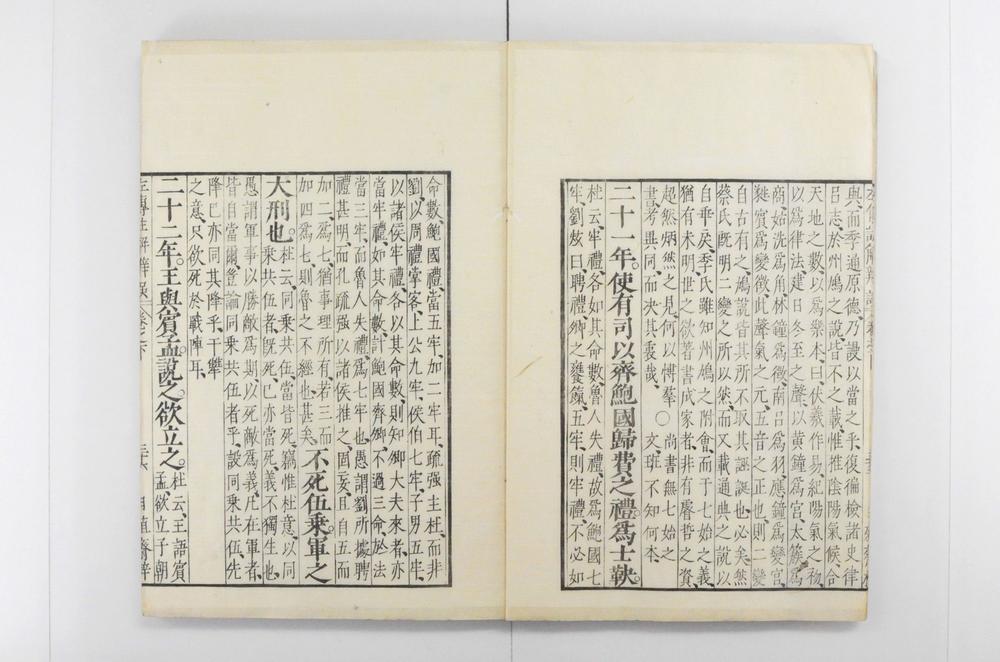 典、而季通原德、乃謾以當之乎、復徧檢諸史律
呂志、於州鳩之說、皆不之載、惟推陰陽氣候合
天地之數、以爲樂本、曰、伏羲作易、紀陽氣之初、
以爲律法、建日冬至之聲、以黃鐘爲宮、太簇爲
商、姑洗爲角、林鐘爲徵、南呂爲羽、應鐘爲變宮、
蕤賓爲變徵、此聲氣之元、五音之正也、則二變
自古有之、鳩說皆其所不取、其誣誕也必矣、然
蔡氏旣明二變之所以然、而又載通典之說、以
自垂戾、季氏雖知州鳩之附會、而于七始之義
猶有未明、世之欲著書成家者、非有睿哲之資、
超然炳然之見、何以博羣書、考異同、而決其衷哉、〇尚書無七始之文、班不知何本、
二十一年。使有司以齊鮑國歸費之禮。爲士鞅。
杜云、牢禮各如其命數、魯人失禮、故爲鮑國七
牢、劉炫曰、聘禮、卿之饔餼、五牢、則牢禮、不必如
命數、鮑國禮、當五牢、加二牢耳、疏强主杜、而非
劉、以周禮掌客、上公九牢、侯伯七牢、子男五牢、
以諸侯牢禮、各以其命數、則知卿大夫來者、亦
當牢禮、如其命數、計鮑國齊卿、不過三命、於法
當三牢、而魯人失禮、爲七牢也、愚謂劉所據聘
禮甚明、而孔疏强以諸侯推之、固亥、且自五而
加二、爲七、猶事理所有、若三而
加四爲七、則魯之不經也甚矣、不死伍乘。軍之
大刑也。杜云、同乘共伍、當皆死、竊惟杜意、以同
乘共伍者旣死、已亦當死、義不獨生也、
愚謂軍事以勝敵爲期、以死敵爲義、凡在軍者、
皆自當爾、豈論同乘共伍者乎、設同乘共伍、先
降、已亦同其降乎、于犨
之意、只欲死於戰陣耳、
二十二年。王與賓孟說之。欲立之。杜云、王語賓
孟、欲立子朝